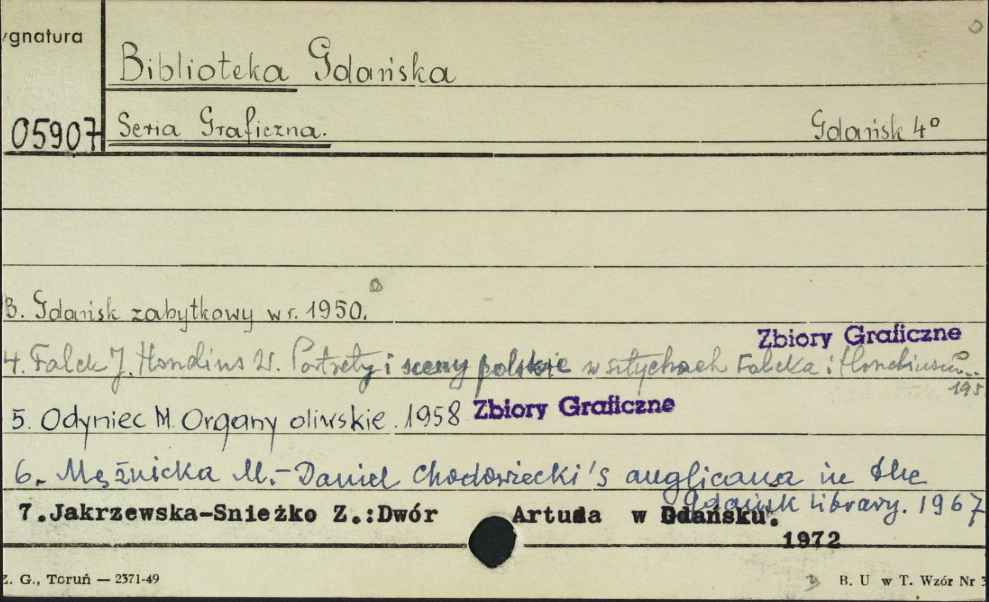 ygnatura
Biblioteka Gdańska
05907 Seria Graficzna. Gdańsk 4°
3. Gdańsk zabytkowy w r. 1950.
Zbiory Graficzne
4. Falck J. Hondius W. Portrety i sceny polskie w sztychach Falcka i Hondiusa..
195
5. Odyniec M. Organy oliwskie. 1958 Zbiory Graficzne
6. Mężnicka M.- Daniel Chodowiecki's anglicana in the
Gdańsk Library. 1967
7.Jakrzewska-Snieżko Z.:Dwór Artusa w Gdańsku.
1972
Z. G., Toruń — 2371-49 B. U w T. Wzór Nr 3